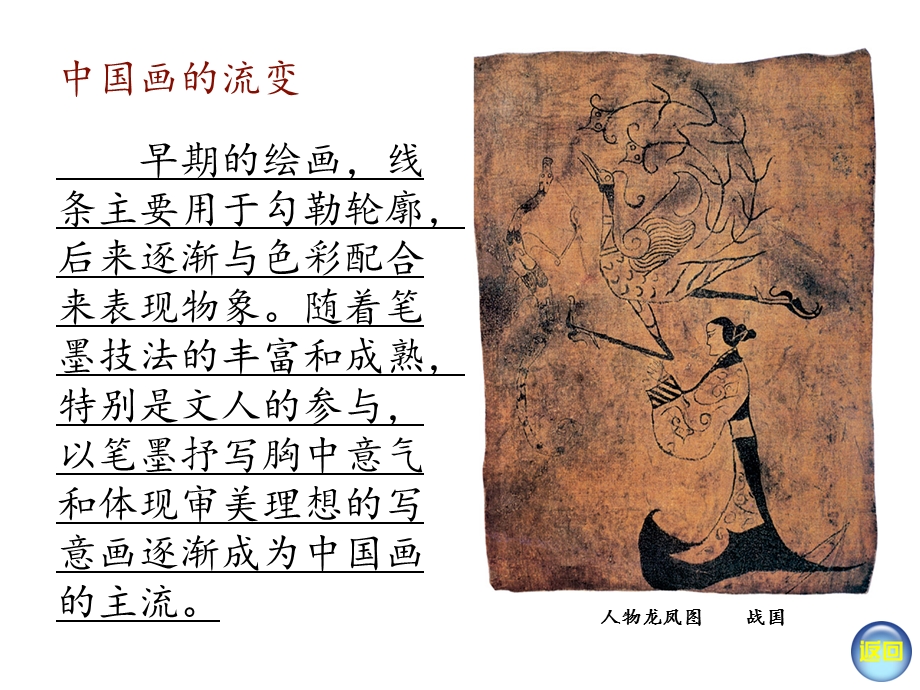 中国画的流变
早期的绘画，线
条主要用于勾勒轮廓，
后来逐渐与色彩配合
来表现物象。随着笔
墨技法的丰富和成熟，
特别是文人的参与，
以笔墨抒写胸中意气
和体现审美理想的写
意画逐渐成为中国画
的主流。
人物龙凤图 战国
返回